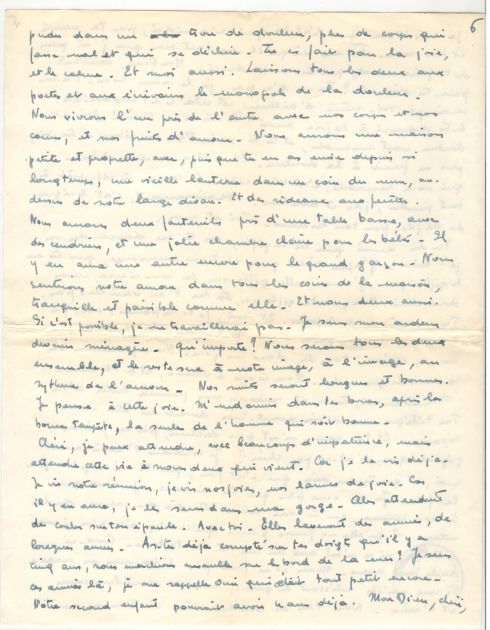 6
perdu dans un trou de douleur, plus de corps qui
fasse mal et qui se déchire. Tu es fait pour la joie,
et le calme. Et moi aussi. Laissons tous les deux aux
poètes et aux écrivains le monopole de la douleur.
Nous vivrons l'un près de l'autre avec nos corps et nos
cœurs, et nos fruits d'amour. Nous aurons une maison
petite et proprette, avec, puisque tu en as envie depuis si
longtemps, une vieille lanterne dans un coin du mur, au-
dessus de notre large divan. Et des rideaux aux fenêtres.
Nous aurons deux fauteuils près d'une table basse, avec
des cendriers, et une jolie chambre claire pour les bébés. Il
y en aura une autre encore pour le grand garçon. Nous
sentirons notre amour dans tous les coins de la maison,
tranquille et paisible comme elle. Et nous deux aussi.
Si c'est possible, je ne travaillerai pas. Je sens mon ardeur
devenir ménagère. Qu'importe? Nous serons tous les deux
ensemble, et le reste sera à notre image, à l'image, au
rythme de l'amour. Nos nuits seront longues et bonnes.
Je pense à cette joie. M'endormir dans tes bras, après la
bonne tempête, la seule de l'homme qui soit bonne.
Chéri, je peux attendre, avec beaucoup d'impatience, mais
attendre cette vie à nous deux qui vient. Car je la vis déjà.
Je vis notre réunion, je vis nos joies, nos larmes de joie. Car
il y en aura, je les sens dans ma gorge. Elles attendent
de couler sur ton épaule. Avec toi. Elles laveront des années, de
longues années. As-tu déjà compté sur tes doigts qu'il y a
cinq ans, nous marchions ensemble sur le bord de la mer? Je sens
ces années là, je me rappelle qui était tout petit encore.
Notre second enfant pourrait avoir 4 ans déjà. Mon Dieu, chéri,